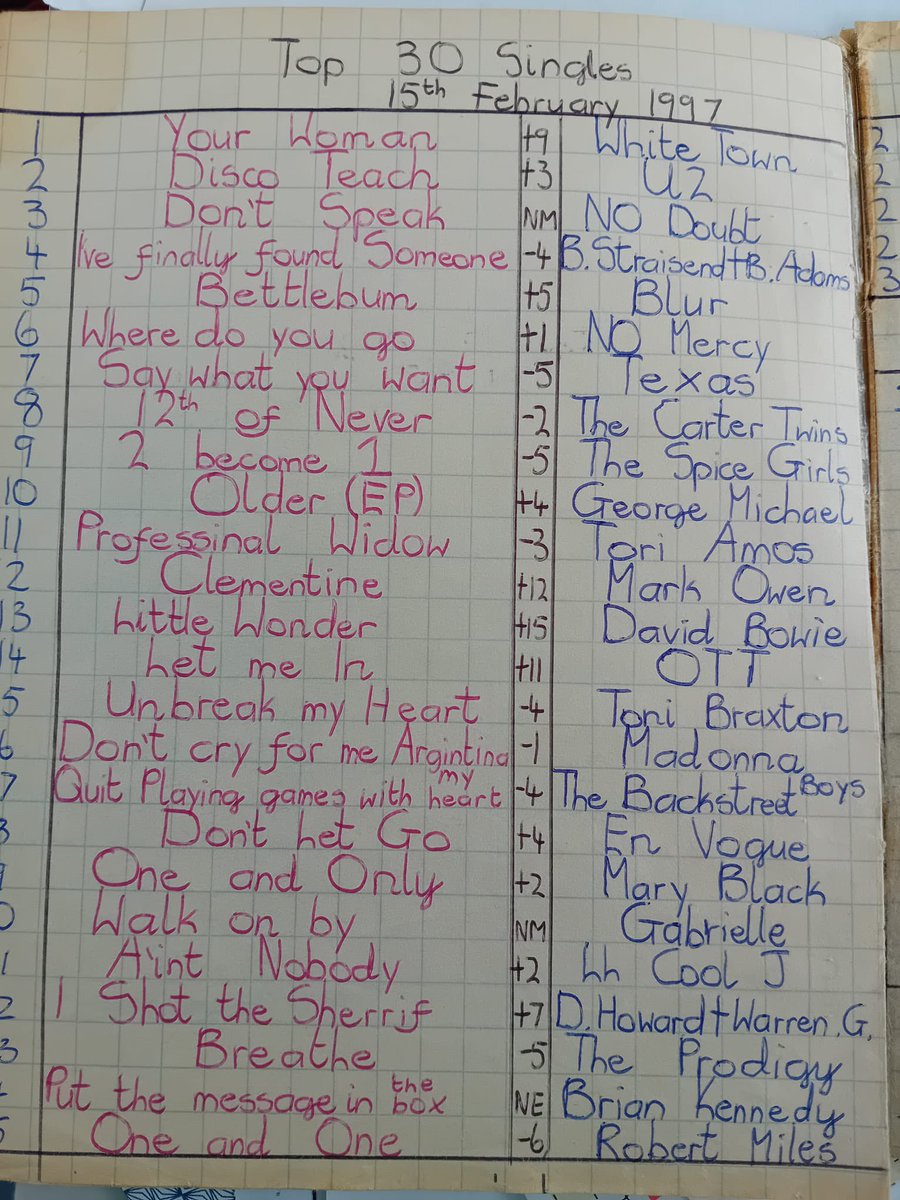 Top 30 Singles
15th February 1997
1 Your Woman +9 White Town
2 Disco Teach +3 U2
3 Don't Speak NM NO Doubt
4 I've finally found Someone -4 B.Straisend+B.Adams
5 Bettlebum +5 Blur
6 Where do you go +1 NO Mercy
7 Say what you want -5 Texas
8 12th of Never -2 The Carter Twins
9 2 become 1 -5 The Spice Girls
10 Older (EP) +4 George Michael
11 Professinal Widow -3 Tori Amos
2 Clementine +12 Mark Owen
13 Little Wonder +15 David Bowie
14 Let me In +11 OTT
5 Unbreak my Heart -4 Toni Braxton
6 Don't cry for me Arginting -1 Madonna
7 Quit Playing games with my heart -4 The Backstreet Boys
8 Don't Let Go +4 En Vogue
9 One and Only +2 Mary Black
0 Walk on by NM Gabrielle
1 A'int Nobody +2 LL Cool J
2 I Shot the Sherrif +7 D.Howard+Warren.G.
3 Breathe -5 The Prodigy
4 Put the message in the box NE Brian Kennedy
5 One and One -6 Robert Miles
2
2
2
2
3